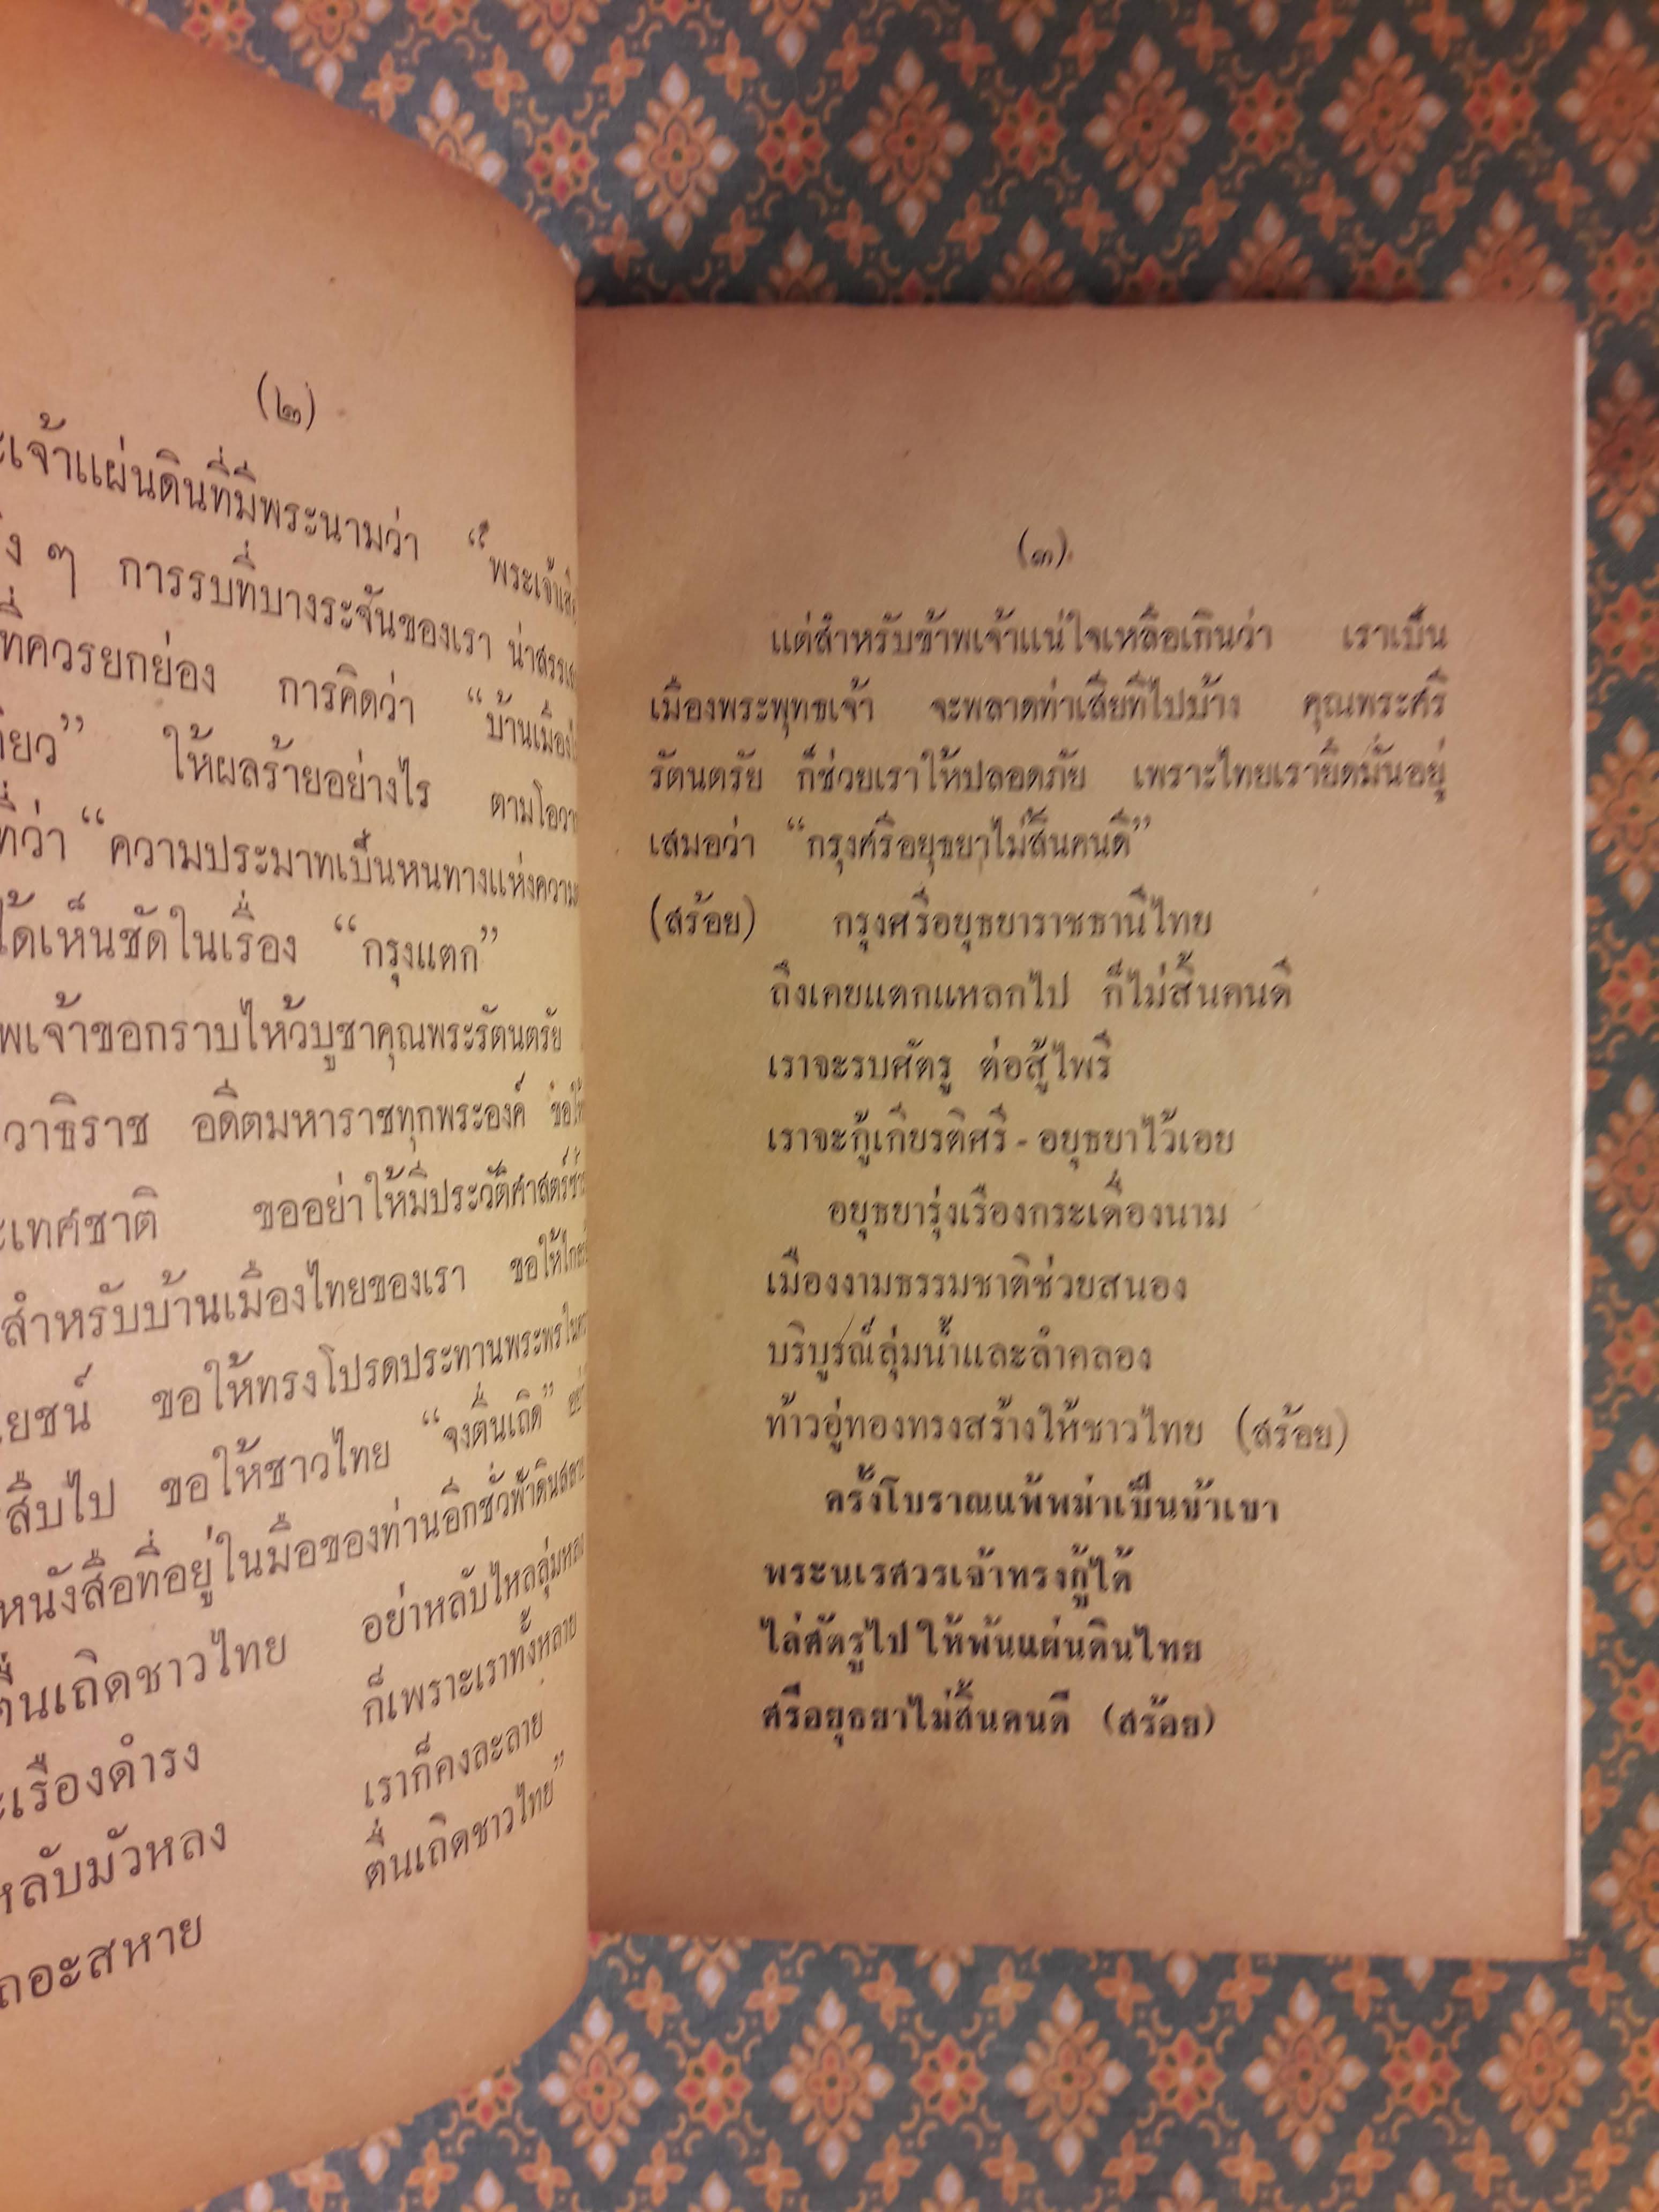 (๒)
เจ้าแผ่นดินที่มีพระนามว่า “พระเจ้า
ๆ การรบที่บางระจันของเรา
ที่ควรยกย่อง การคิดว่า “บ้านเมือง
ให้ผลร้ายอย่างไร ตาม
ที่ว่า “ความประมาทเป็นหนทางแห่งความ
ได้เห็นชัดในเรื่อง “กรุงแตก”
พเจ้าขอกราบไหว้บูชาคุณพระรัตนตรัย
วาธิราช อดีตมหาราชทุกพระองค์
ะเทศชาติ ขออย่าให้มีประวัติศาสตร์
สำหรับบ้านเมืองไทยของเรา ขอให้
ยชน์ ขอให้ทรงโปรดประทานพระพร
สืบไป ขอให้ชาวไทย “จงตื่นเถิด”
หนังสือที่อยู่ในมือของท่านอีกชั่วฟ้าดินสลาย
ตื่นเถิดชาวไทย อย่าหลับไหลลุ่มหลง
ะเรืองดำรง ก็เพราะเราทั้งหลาย
หลับมัวหลง เราก็คงละลาย
ถอะสหาย ตื่นเถิดชาวไทย”
(๓)
แต่สำหรับข้าพเจ้าแน่ใจเหลือเกินว่า เราเป็น
เมืองพระพุทธเจ้า จะพลาดท่าเสียทีไปบ้าง คุณพระศรี
รัตนตรัย ก็ช่วยเราให้ปลอดภัย เพราะไทยเรายึดมั่นอยู่
เสมอว่า “กรุงศรีอยุธยาไม่สิ้นคนดี”
(สร้อย) กรุงศรีอยุธยาราชธานีไทย
ถึงเคยแตกแหลกไป ก็ไม่สิ้นคนดี
เราจะรบศัตรู ต่อสู้ไพรี
เราจะกู้เกียรติศรี - อยุธยาไว้เอย
อยุธยารุ่งเรืองกระเดื่องนาม
เมืองงามธรรมชาติช่วยสนอง
บริบูรณ์ลุ่มน้ำและลำคลอง
ท้าวอู่ทองทรงสร้างให้ชาวไทย (สร้อย)
ครั้งโบราณแพ้พม่าเป็นข้าเขา
พระนเรศวรเจ้าทรงกู้ได้
ไล่ศัตรูไป ให้พ้นแผ่นดินไทย
ศรีอยุธยาไม่สิ้นคนดี (สร้อย)